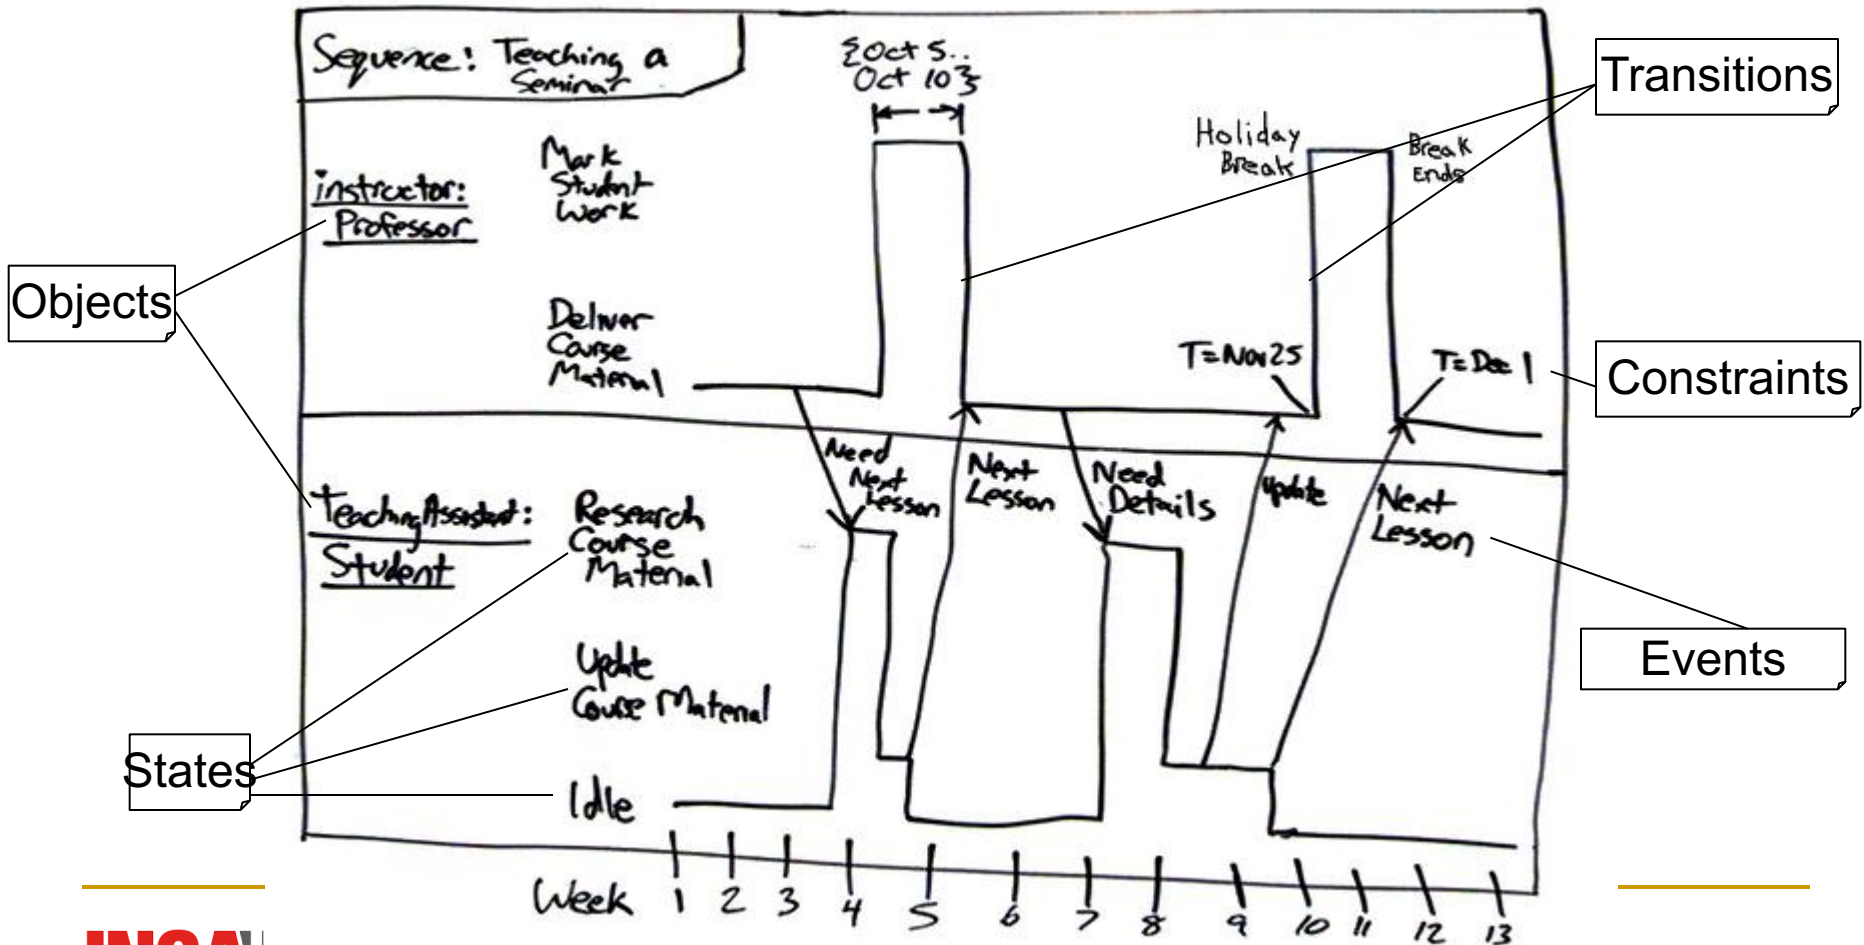 Sequence: Teaching a
Seminar
{Oct 5..
Oct 10}
Transitions
Holiday
Break
Break
Ends
Mark
Student
Work
instructor:
Professor
Objects
Deliver
Course
Material
T=Nov 25
T=Dec 1
Constraints
Need
Next
Lesson
Next
Lesson
Need
Details
Update
Next
Lesson
TeachingAssistant:
Student
Research
Course
Material
Events
Update
Course Material
States
Idle
Week 1 2 3 4 5 6 7 8 9 10 11 12 13
INSA